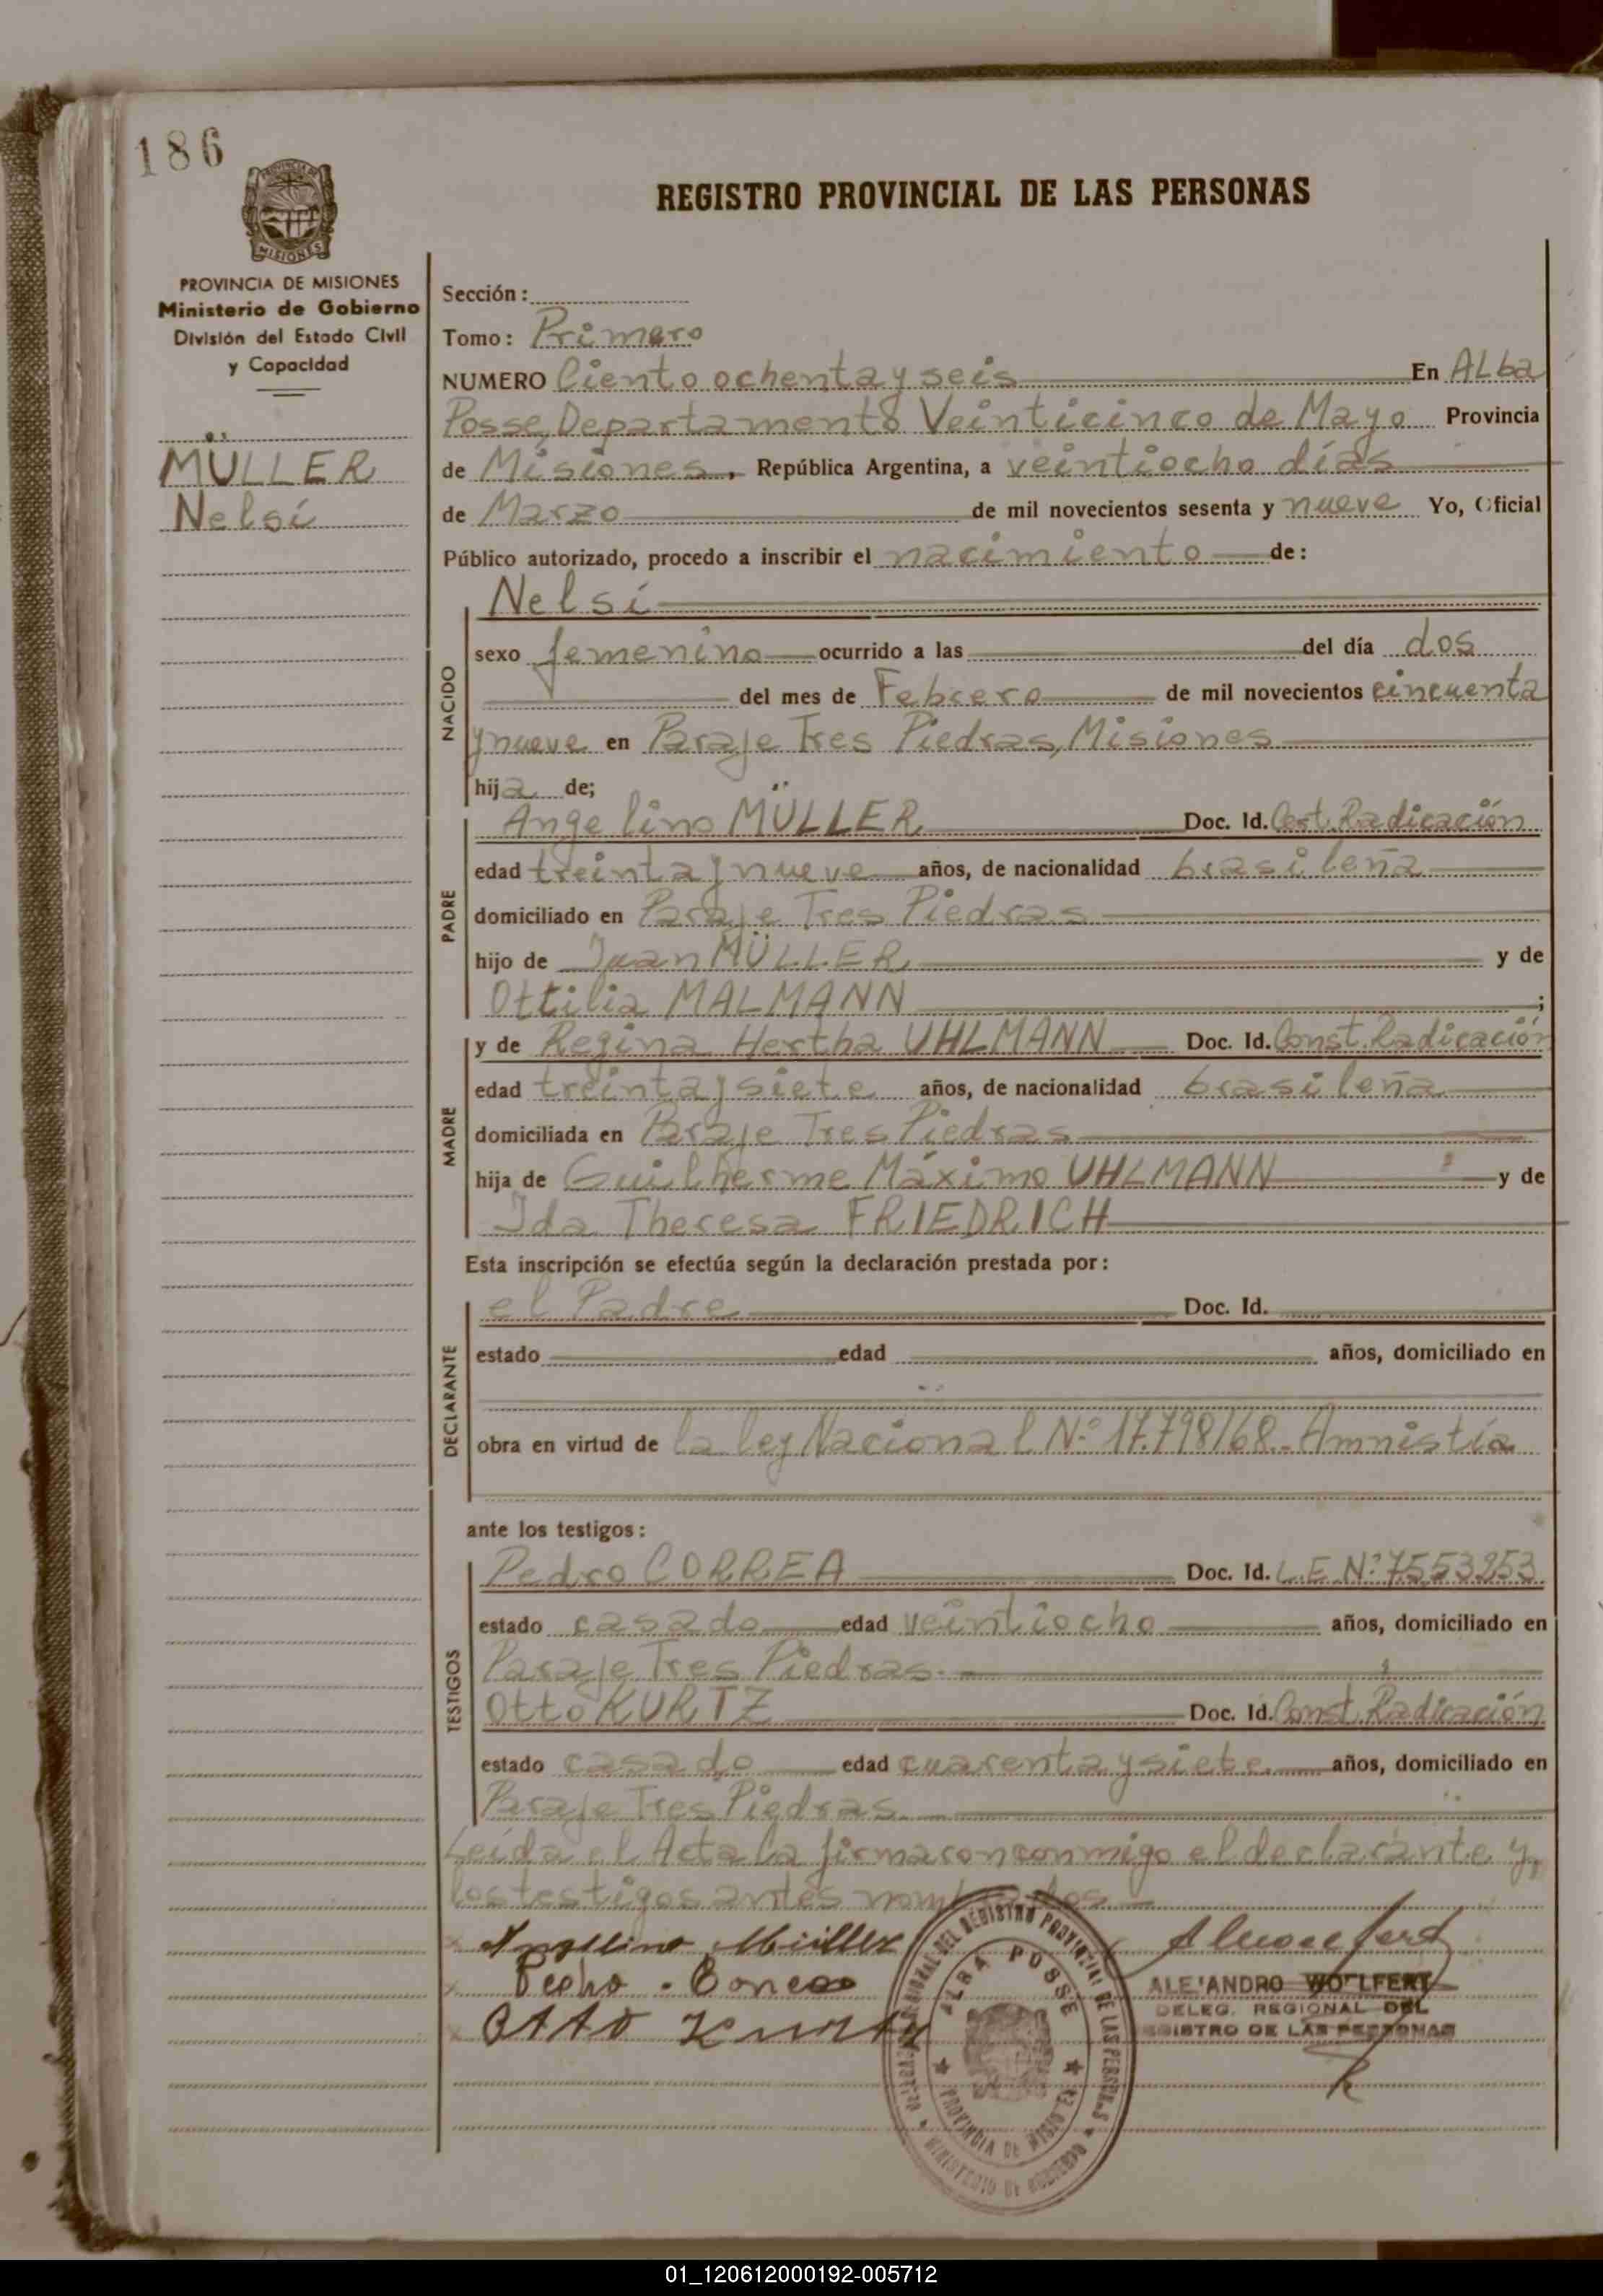 186
PROVINCIA DE MISIONES
Ministerio de Gobierno
División del Estado Civil
y Capacidad
MÜLLER
Nelsi
REGISTRO PROVINCIAL DE LAS PERSONAS
Sección:
Tomo: Primero
NUMERO Ciento ochenta y seis En ALba
Posse, Departamento Veinticinco de Mayo Provincia
de Misiones, República Argentina, a veintiocho días
de Marzo de mil novecientos sesenta y nueve Yo, Oficial
Público autorizado, procedo a inscribir el nacimiento de:
NACIDO
Nelsi
sexo femenino ocurrido a las del día dos
del mes de Febrero de mil novecientos cincuenta
y nueve en Paraje Tres Piedras, Misiones
hija de;
PADRE
Angelino MÜLLER Doc. Id. Cert. Radicación
edad treinta y nueve años, de nacionalidad brasileña
domiciliado en Paraje Tres Piedras
hijo de Juan MÜLLER y de
Ottilia MALMANN ;
MADRE
y de Regina Hertha UHLMANN Doc. Id. Const. Radicación
edad treinta y siete años, de nacionalidad brasileña
domiciliada en Paraje Tres Piedras
hija de Guilherme Máximo UHLMANN y de
Ida Theresa FRIEDRICH
Esta inscripción se efectúa según la declaración prestada por:
DECLARANTE
el Padre Doc. Id.
estado edad años, domiciliado en
obra en virtud de la ley Nacional Nº 17.798/68.- Amnistía
ante los testigos:
TESTIGOS
Pedro CORREA Doc. Id. L.E. Nº 7553253
estado casado edad veintiocho años, domiciliado en
Paraje Tres Piedras.
Otto KURTZ Doc. Id. Const. Radicación
estado casado edad cuarenta y siete años, domiciliado en
Paraje Tres Piedras.
Leída el Acta la firmaron conmigo el declarante y
los testigos antes nombrados
Angelino Müller
Pedro Correa
Otto Kurtz
ALBA POSSE
PROVINCIA DE MISIONES
MINISTERIO DE GOBIERNO
DEL REGISTRO PROVINCIAL DE LAS PERSONAS
ALEJANDRO WOLLFERT
DELEG. REGIONAL DEL
REGISTRO DE LAS PERSONAS
01_120612000192-005712